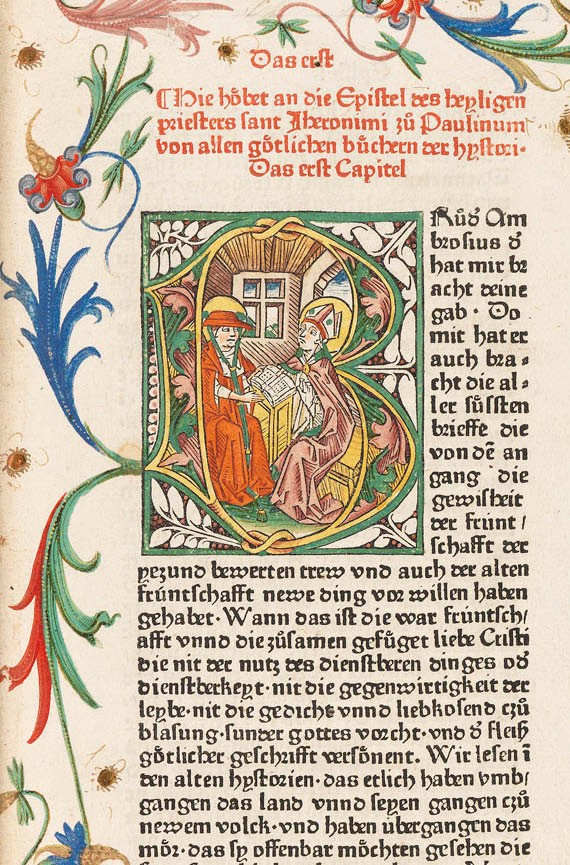 Das erst
Hie höbet an die Epistel des heyligen
priesters sant Jheronimi zů Paulinum
von allen götlichen bůchern der hystori·
Das erst Capitel
Růď Am
brosius ď
hat mir br
acht deine
gab · Do
mit hat er
auch bra⸗
cht die al⸗
ler sůssten
brieffe die
von dē an
gang die
gewisheit
der frünt /
schafft der
yezund bewerten trew vnd auch der alten
früntschafft newe ding vor willen haben
gehabet· Wann das ist die war früntsch/
afft vnnd die zůsamen gefůget liebe Cristi
die nit der nutz des dienstberen dinges oď
dienstberkeyt·nit die gegenwirtigkeit der
leybe·nit die gedicht vnnd liebkosend czů
blasung·sunder gottes vorcht·vnd ď fleiß
götlicher geschrifft versönent. Wir lesen ī
den alten hystorien·das etlich haben vmb/
gangen das land vnnd seyen gangen czů
newem volck·vnd haben übergangen das
mör·das sy offenbar möchten gesehen die